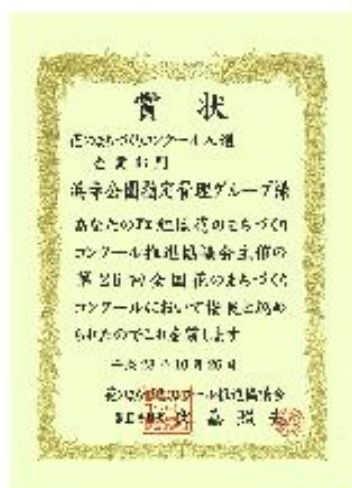 賞状
花のまちづくりコンクール入選
企業部門
浜寺公園指定管理グループ様
あなたの は花のまちづくり
コンクール推進協議会主催の
第26回全国花のまちづくり
コンクールにおいて優良と認め
られたのでこれを賞します
平成28年10月26日
花のまちづくりコンクール推進協議会